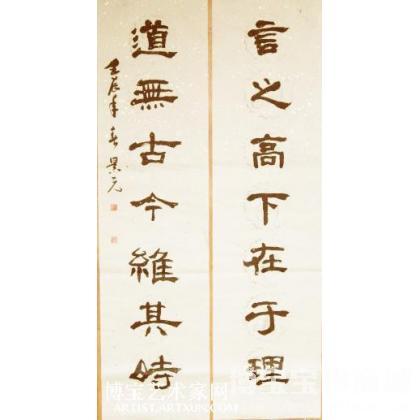 言之高下在于理
道無古今維其時
壬辰年春景元
博宝艺术家网
ARTIST.ARTXUN.COM